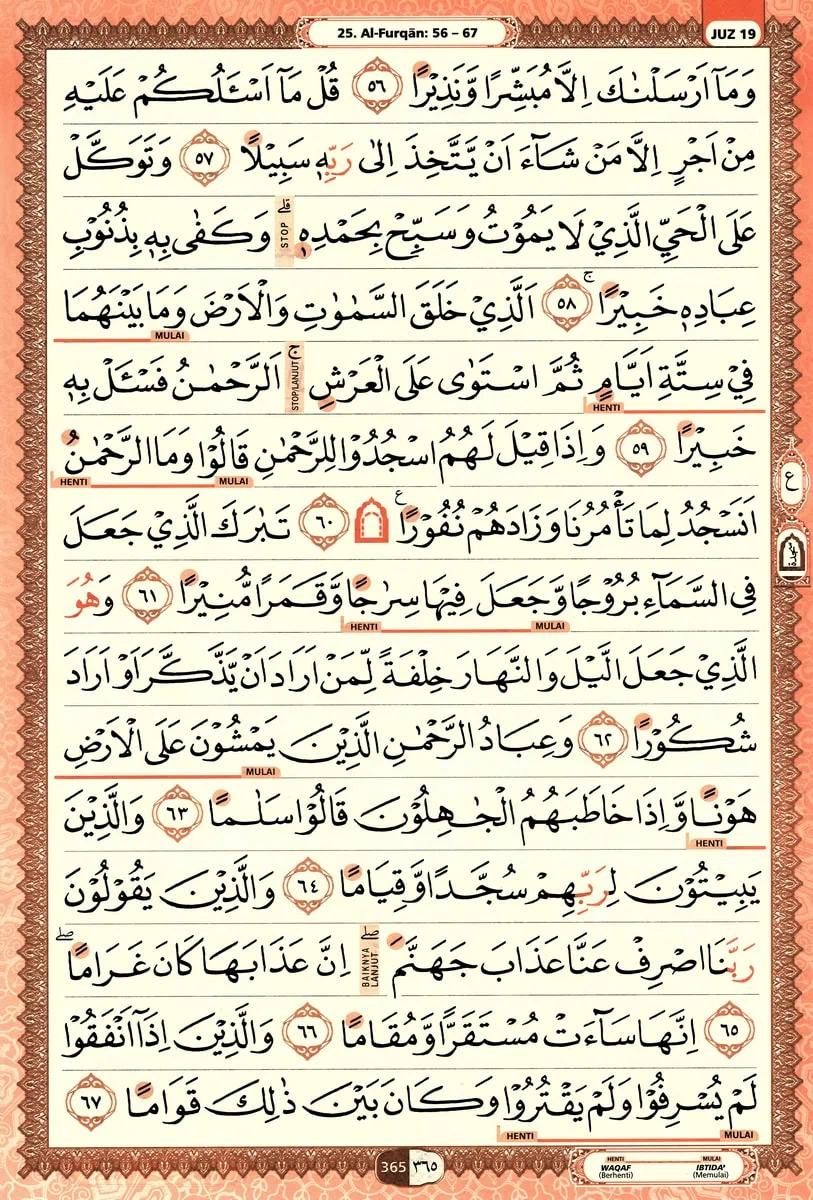 25. Al-Furqān: 56 – 67
JUZ 19
وَمَآ اَرْسَلْنٰكَ اِلَّا مُبَشِّرًا وَّنَذِيْرًا ٥٦ قُلْ مَآ اَسْـَٔلُكُمْ عَلَيْهِ
مِنْ اَجْرٍ اِلَّا مَنْ شَاۤءَ اَنْ يَّتَّخِذَ اِلٰى رَبِّهٖ سَبِيْلًا ٥٧ وَتَوَكَّلْ
عَلَى الْحَيِّ الَّذِيْ لَا يَمُوْتُ وَسَبِّحْ بِحَمْدِهٖۗ STOP وَكَفٰى بِهٖ بِذُنُوْبِ
عِبَادِهٖ خَبِيْرًاۚ ٥٨ اَلَّذِيْ خَلَقَ السَّمٰوٰتِ وَالْاَرْضَ وَمَا بَيْنَهُمَا
MULAI
فِيْ سِتَّةِ اَيَّامٍ ثُمَّ اسْتَوٰى عَلَى الْعَرْشِۚ STOP/LANJUT اَلرَّحْمٰنُ فَسْـَٔلْ بِهٖ
HENTI
خَبِيْرًا ٥٩ وَاِذَا قِيْلَ لَهُمُ اسْجُدُوْا لِلرَّحْمٰنِ قَالُوْا وَمَا الرَّحْمٰنُ
MULAI HENTI
اَنَسْجُدُ لِمَا تَأْمُرُنَا وَزَادَهُمْ نُفُوْرًا ۩ ع ٦٠ تَبٰرَكَ الَّذِيْ جَعَلَ
ع
سجدة
فِى السَّمَاۤءِ بُرُوْجًا وَّجَعَلَ فِيْهَا سِرٰجًا وَّقَمَرًا مُّنِيْرًا ٦١ وَهُوَ
MULAI HENTI
الَّذِيْ جَعَلَ الَّيْلَ وَالنَّهَارَ خِلْفَةً لِّمَنْ اَرَادَ اَنْ يَّذَّكَّرَ اَوْ اَرَادَ
شُكُوْرًا ٦٢ وَعِبَادُ الرَّحْمٰنِ الَّذِيْنَ يَمْشُوْنَ عَلَى الْاَرْضِ
MULAI
هَوْنًا وَّاِذَا خَاطَبَهُمُ الْجٰهِلُوْنَ قَالُوْا سَلٰمًا ٦٣ وَالَّذِيْنَ
HENTI
يَبِيْتُوْنَ لِرَبِّهِمْ سُجَّدًا وَّقِيَامًا ٦٤ وَالَّذِيْنَ يَقُوْلُوْنَ
رَبَّنَا اصْرِفْ عَنَّا عَذَابَ جَهَنَّمَۖ BAIKNYA LANJUT اِنَّ عَذَابَهَا كَانَ غَرَامًاۖ
٦٥ اِنَّهَا سَاۤءَتْ مُسْتَقَرًّا وَّمُقَامًا ٦٦ وَالَّذِيْنَ اِذَآ اَنْفَقُوْا
لَمْ يُسْرِفُوْا وَلَمْ يَقْتُرُوْا وَكَانَ بَيْنَ ذٰلِكَ قَوَامًا ٦٧
MULAI HENTI
365 ٣٦٥
HENTI MULAI
WAQAF IBTIDA'
(Berhenti) (Memulai)